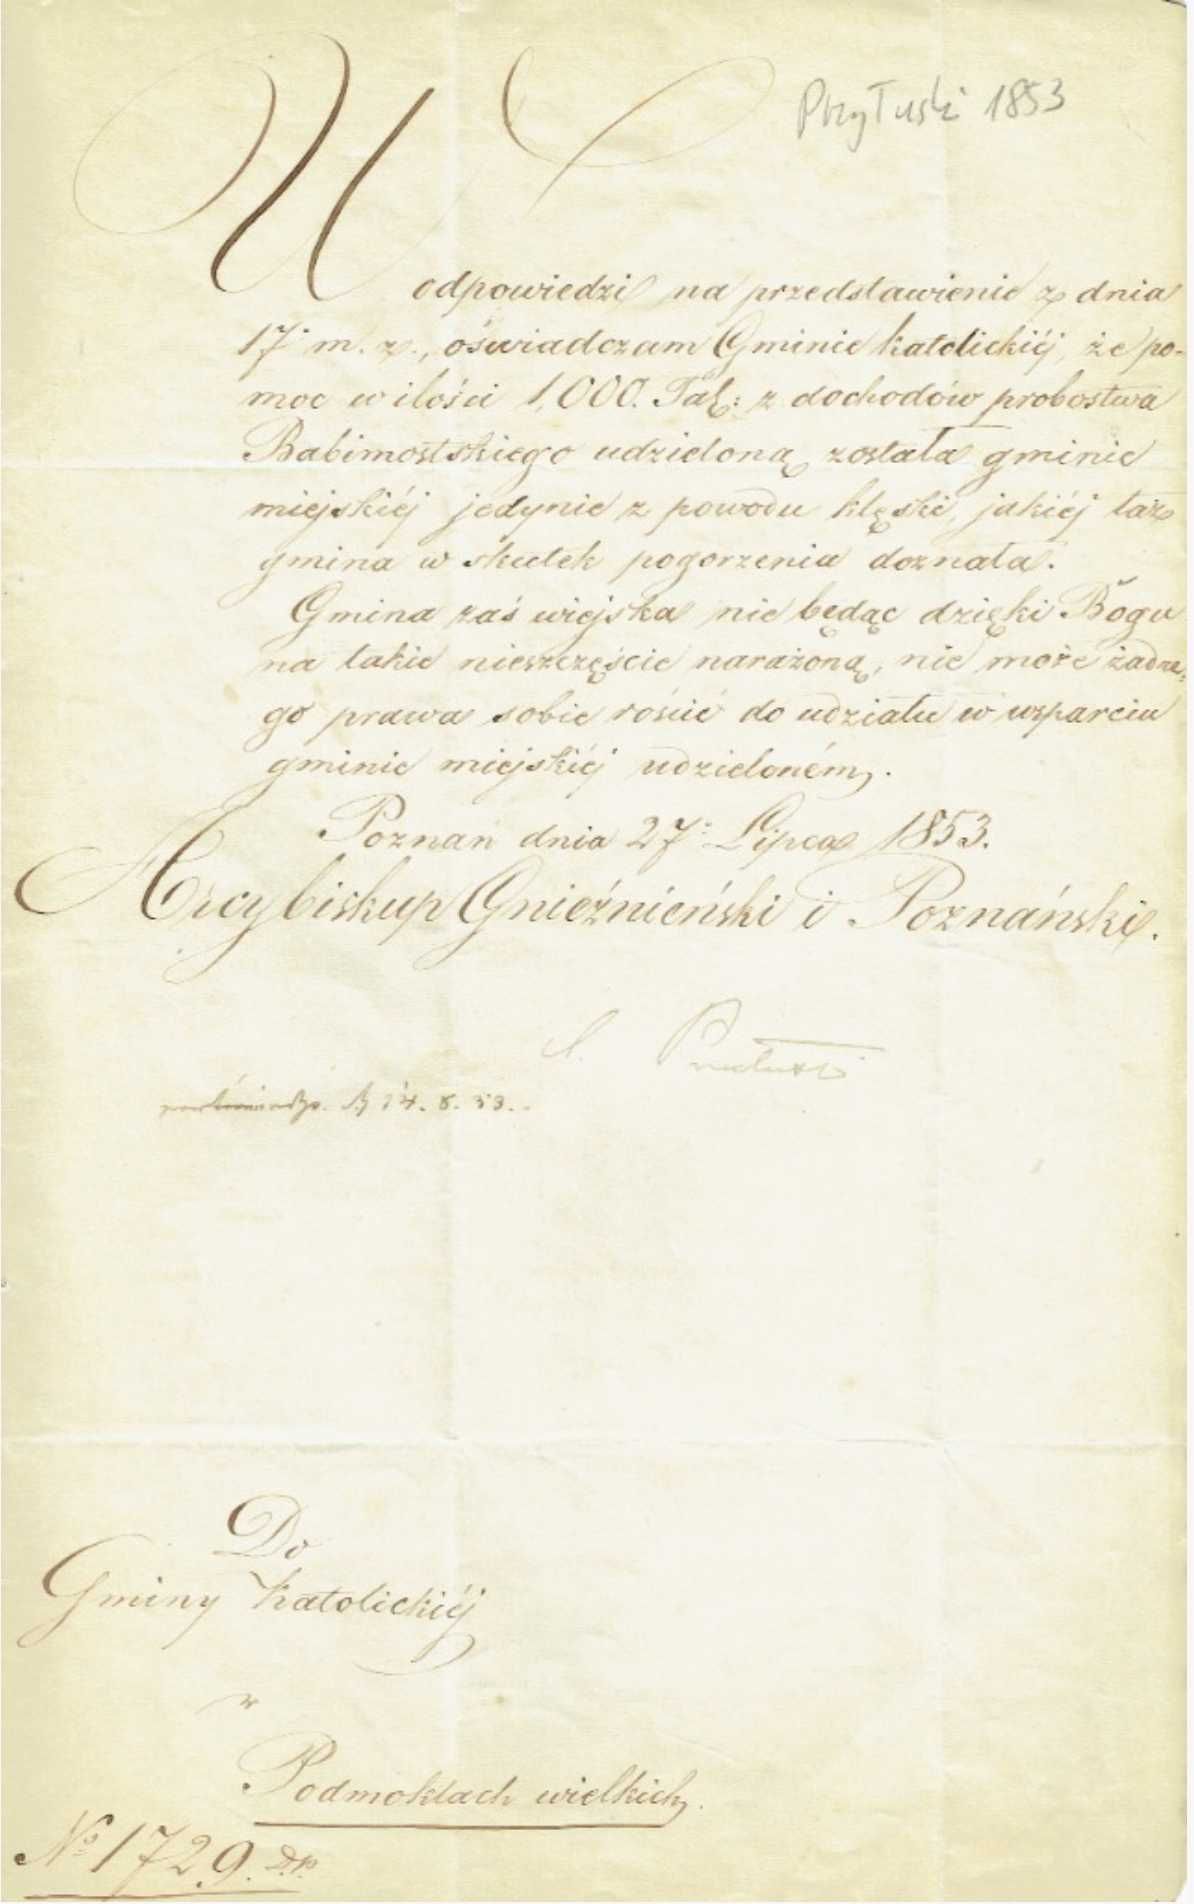 Przyłuski 1853
W odpowiedzi na przedstawienie z dnia
17. m. z., oświadczam Gminie katolickiéj, że po-
moc w ilości 1,000. Tal: z dochodów probostwa
Babimostskiego udzieloną została gminie
miejskiéj jedynie z powodu klęski, jakiéj taż
gmina w skutek pogorzenia doznała.
Gmina zaś wiejska nie będąc dzięki Bogu
na takie nieszczęście narażoną, nie może żadne-
go prawa sobie rościć do udziału w wsparciu
gminie miejskiéj udzieloném.
Poznan dnia 27. Lipca 1853.
Arcybiskup Gnieźnieński i Poznański.
Przyłuski
14. 8. 53.
Do
Gminy katolickiéj
w
Podmoklach wielkich.
No 1729.